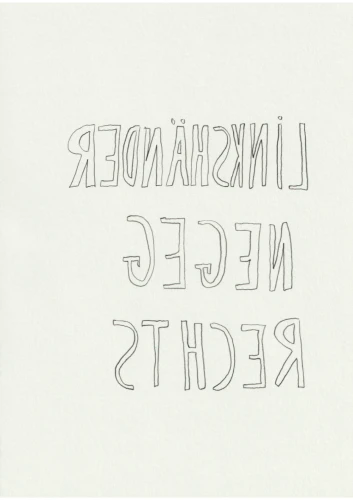 LINKSHÄNDER
GEGEN
RECHTS